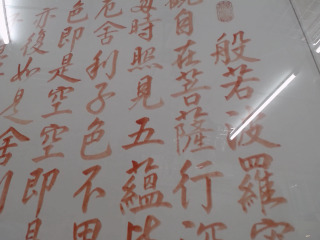 般若波羅蜜
觀自在菩薩行深
時照見五蘊皆
厄舍利子色不異
色即是空空即是
亦復如是舍利